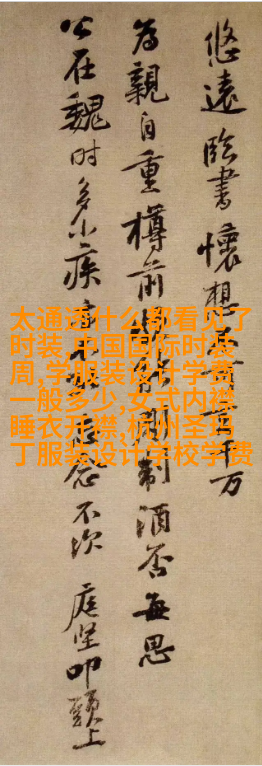 悠遠臨書懷想千万
為親自重樽前制酒否每思
公在魏时多小疾不次庭坚叩頭上
太通透什么都看见了
时装,中国国际时装
周,学服装设计学费
一般多少,女式内襟
睡衣开襟,杭州圣玛
丁服装设计学校学费